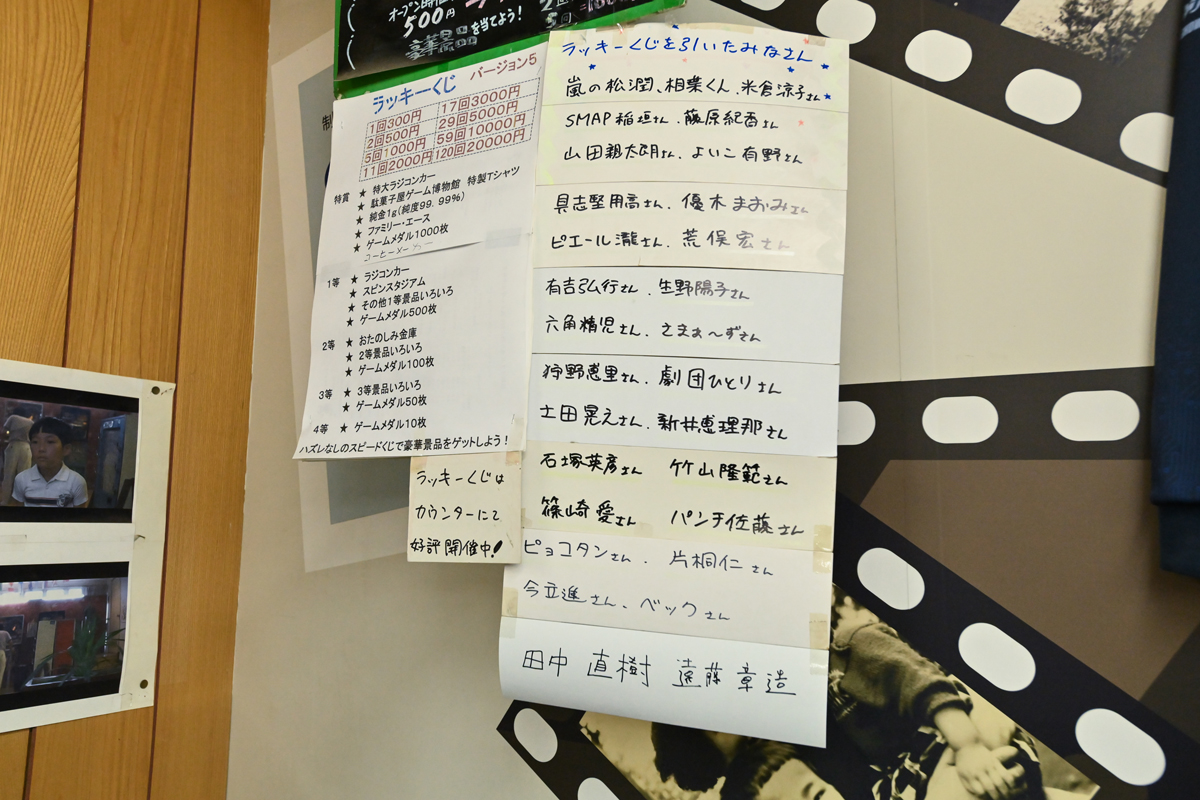 オープン時間
500円
を当てよう!
ラッキーくじ バージョン5
1回300円 17回3000円
2回500円 29回5000円
5回1000円 59回10000円
11回2000円 120回20000円
特賞 ★ 特大ラジコンカー
★ 駄菓子屋ゲーム博物館 特製Tシャツ
★ 純金1g(純度99.99%)
★ ファミリー・エース
★ ゲームメダル1000枚
コーヒーメーカー
1等 ★ ラジコンカー
★ スピンスタジアム
★ その他1等景品いろいろ
★ ゲームメダル500枚
2等 ★ おたのしみ金庫
★ 2等景品いろいろ
★ ゲームメダル100枚
3等 ★ 3等景品いろいろ
★ ゲームメダル50枚
4等 ★ ゲームメダル10枚
ハズレなしのスピードくじで豪華景品をゲットしよう!
ラッキーくじは
カウンターにて
好評開催中!
ラッキーくじを引いたみなさん
嵐の松潤、相葉くん、米倉涼子さん
SMAP稲垣さん、藤原紀香さん
山田親太朗さん、よいこ有野さん
具志堅用高さん、優木まおみさん
ピエール瀧さん、荒俣宏さん
有吉弘行さん、生野陽子さん
六角精児さん、さまぁ〜ずさん
狩野恵里さん、劇団ひとりさん
土田晃えさん、新井恵理那さん
石塚英彦さん 竹山隆範さん
篠崎愛さん パンチ佐藤さん
ピョコタンさん、片桐仁さん
今立進さん、ベックさん
田中 直樹 遠藤 章造